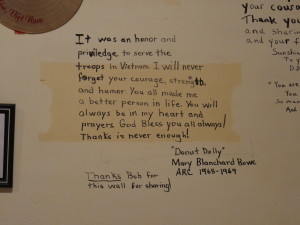 Viet Nam
It was an honor and
privilege to serve the
troops in Vietnam. I will never
forget your courage, strength,
and humor. You all made me
a better person in life. You will
always be in my heart and
prayers. God Bless you all always!
Thanks is never enough!
"Donut Dolly"
Mary Blanchard Bowe
ARC 1968-1969
Thanks Bob for
this wall for sharing!
your coura
Thank you
and sharin
and your f
"You are
You
So many
And